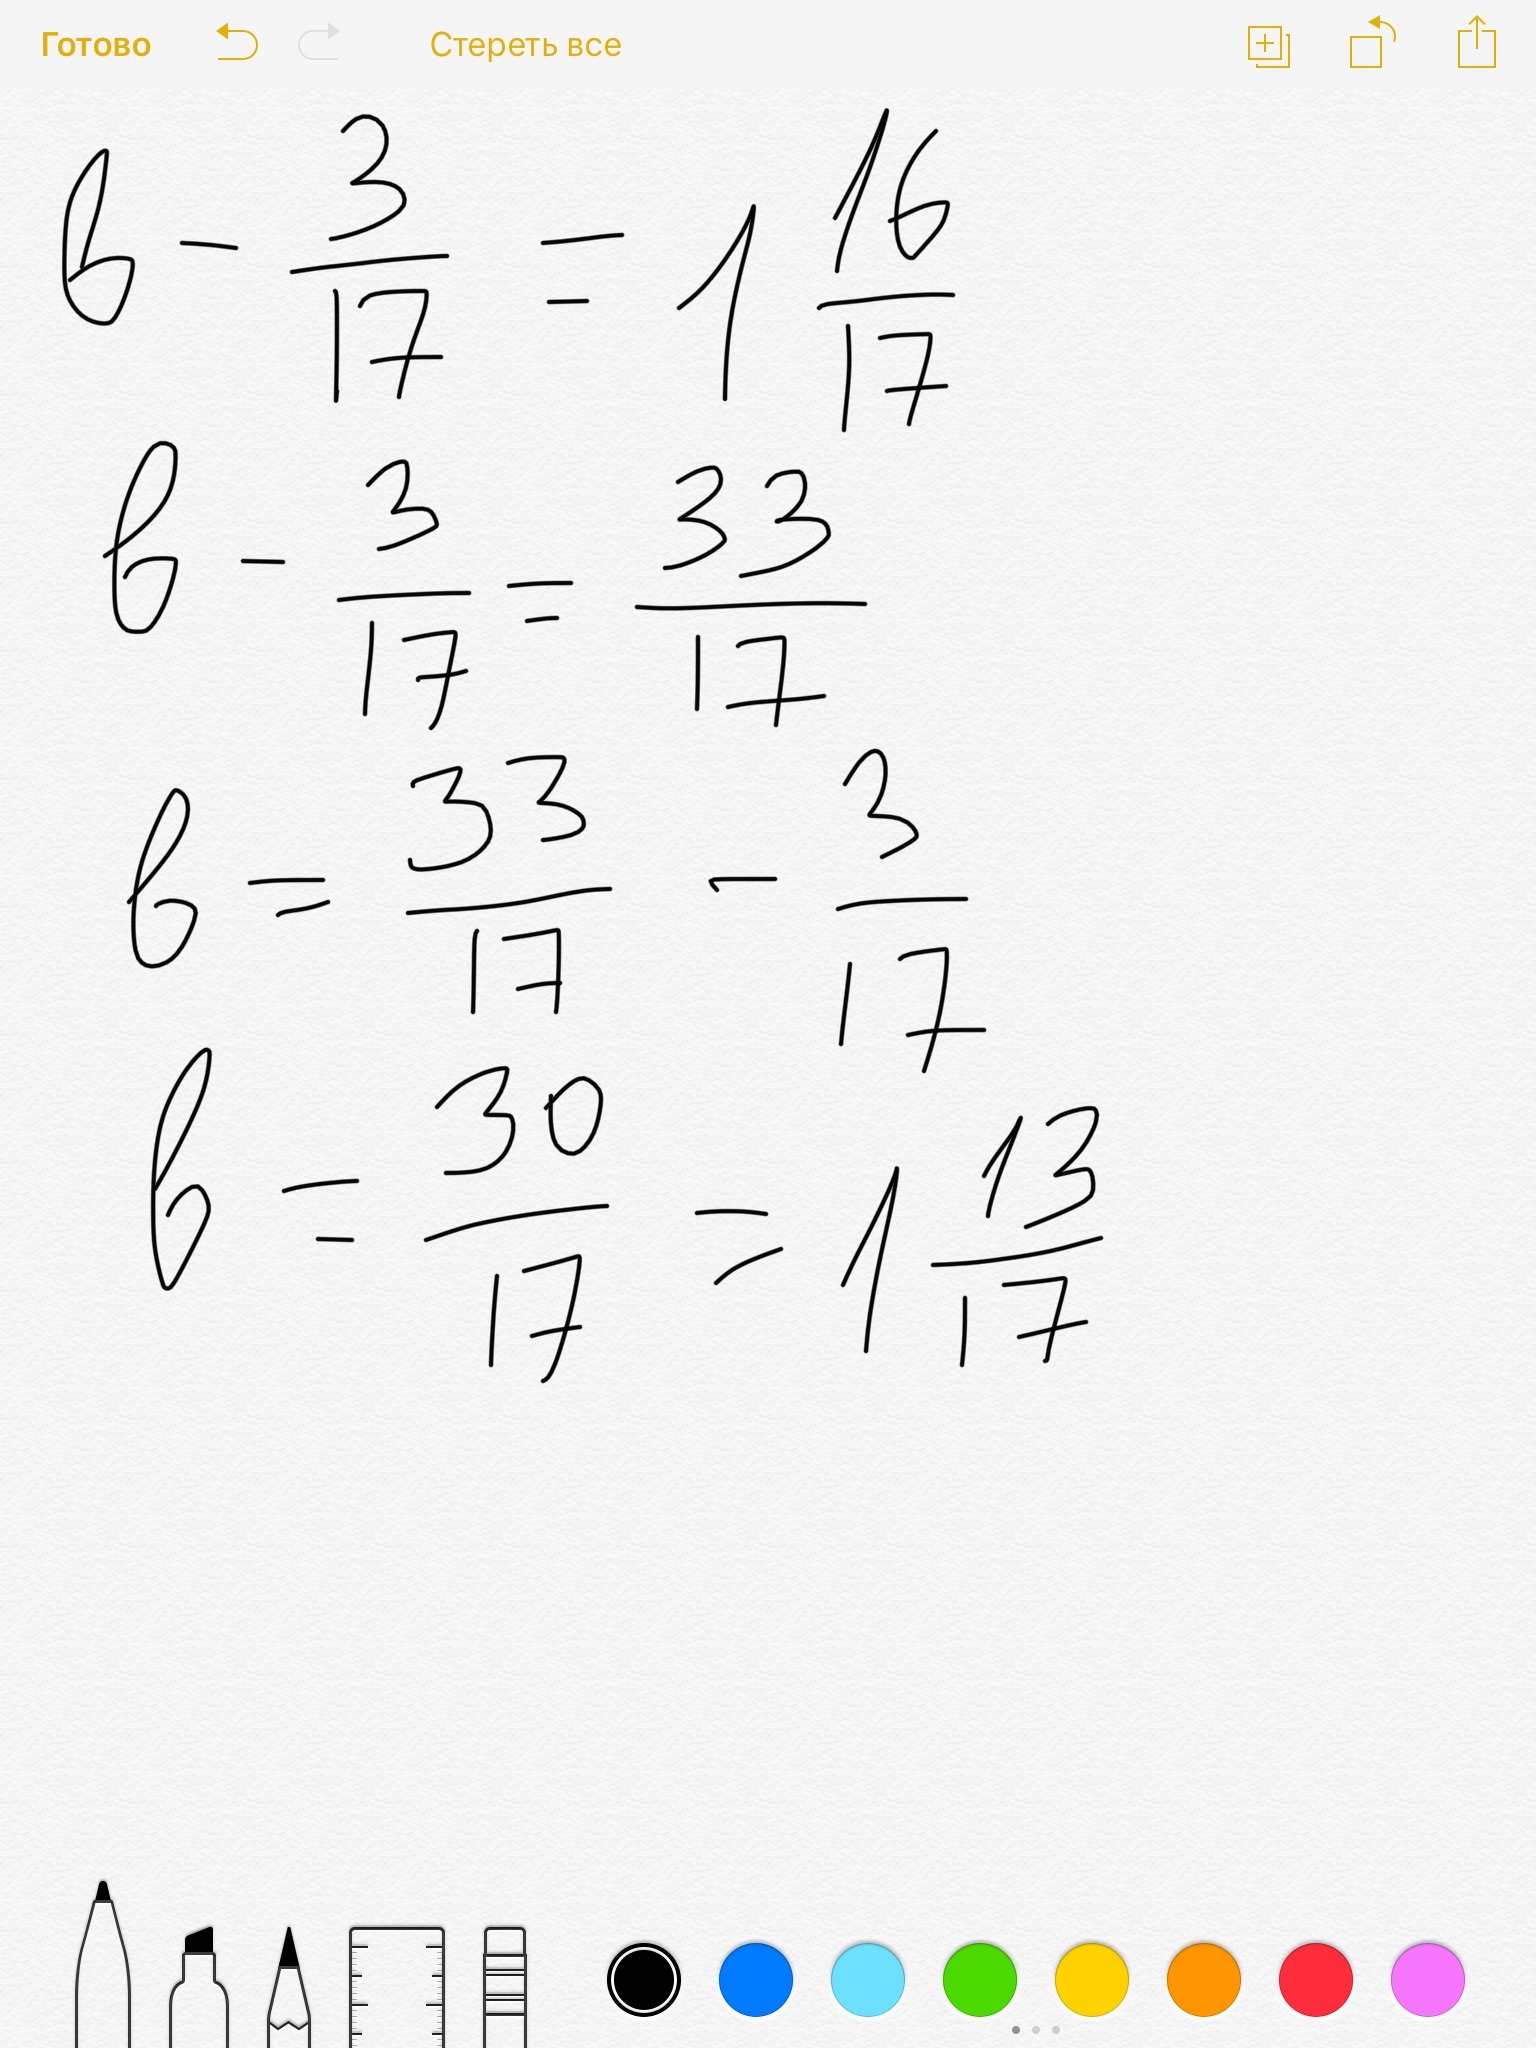 Готово Стереть все
в - 3/17 = 1 16/17
в - 3/17 = 33/17
в = 33/17 - 3/17
в = 30/17 = 1 13/17